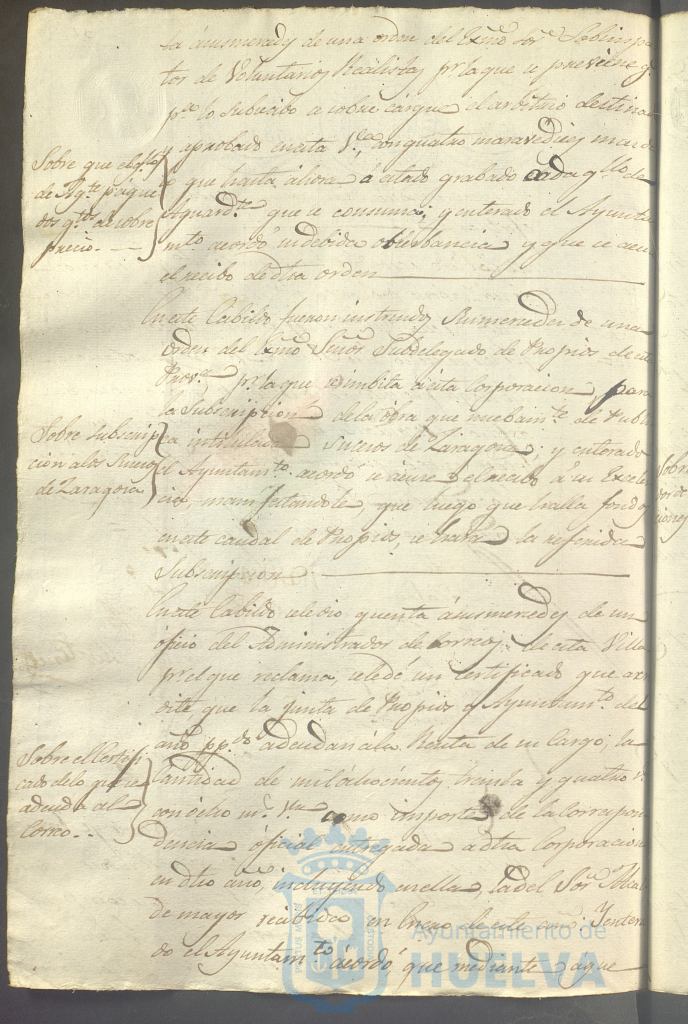 ta á sus mercedes de una orden del Exmo Sor
tor de Voluntarios Realistas pr. la que se previene q.
pr. lo subcesibo se cobre cargue el arbitrio destina
y aprobado en esta V.ª con quatro maravedises mas de
que hasta ahora á estado grabado cada q.llo de
Aguard.te que se consuma; y enterado el Ayunta
mto acordó su debida obserbancia y que se acu
el recibo de dha orden
Sobre que el q.llo
de Ag.te pague
dos q.tos de sobre
precio.
En este Cabildo fueron instruidos Sus mercedes de una
orden del Exmo Señor Subdelegado de Propios de esta
Prov.ª pr. la que se imbita á esta Corporacion, para
la Subscripcion de la obra que nuebam.te se Publi
ca intitulada Sucesos de Zaragoza; y enterado
el Ayuntam.to acordó se acuse el recibo á su Excelen
cia, manifestandole que luego que halla fondos
en este caudal de Propios, se hará la referida
Subscripcion
Sobre subscrip
cion a los Sucesos
de Zaragoza
En este Cabildo se le dio quenta á sus mercedes de un
oficio del Administrador de Correos de esta Villa
pr. el que reclama, se le dé un certificado que acre
dite que la junta de Propios y Ayuntam.to del
año pp.do adeudan á la Renta de su cargo, la
Cantidad de mil ochocientos treinta y quatro r.s
con ocho m.s v.n como importe de la Correspon
dencia oficial entregada a dha Corporacion
en dho año, incluyendo en ella la del Sor. Alcal
de mayor recibida en Enero de este año: Y enten
do el Ayuntam.to acordó que mediante a que
Sobre el Certifi
cado de lo que se
adeuda al
Correo.
Sobre
Ayuntamiento de
HUELVA